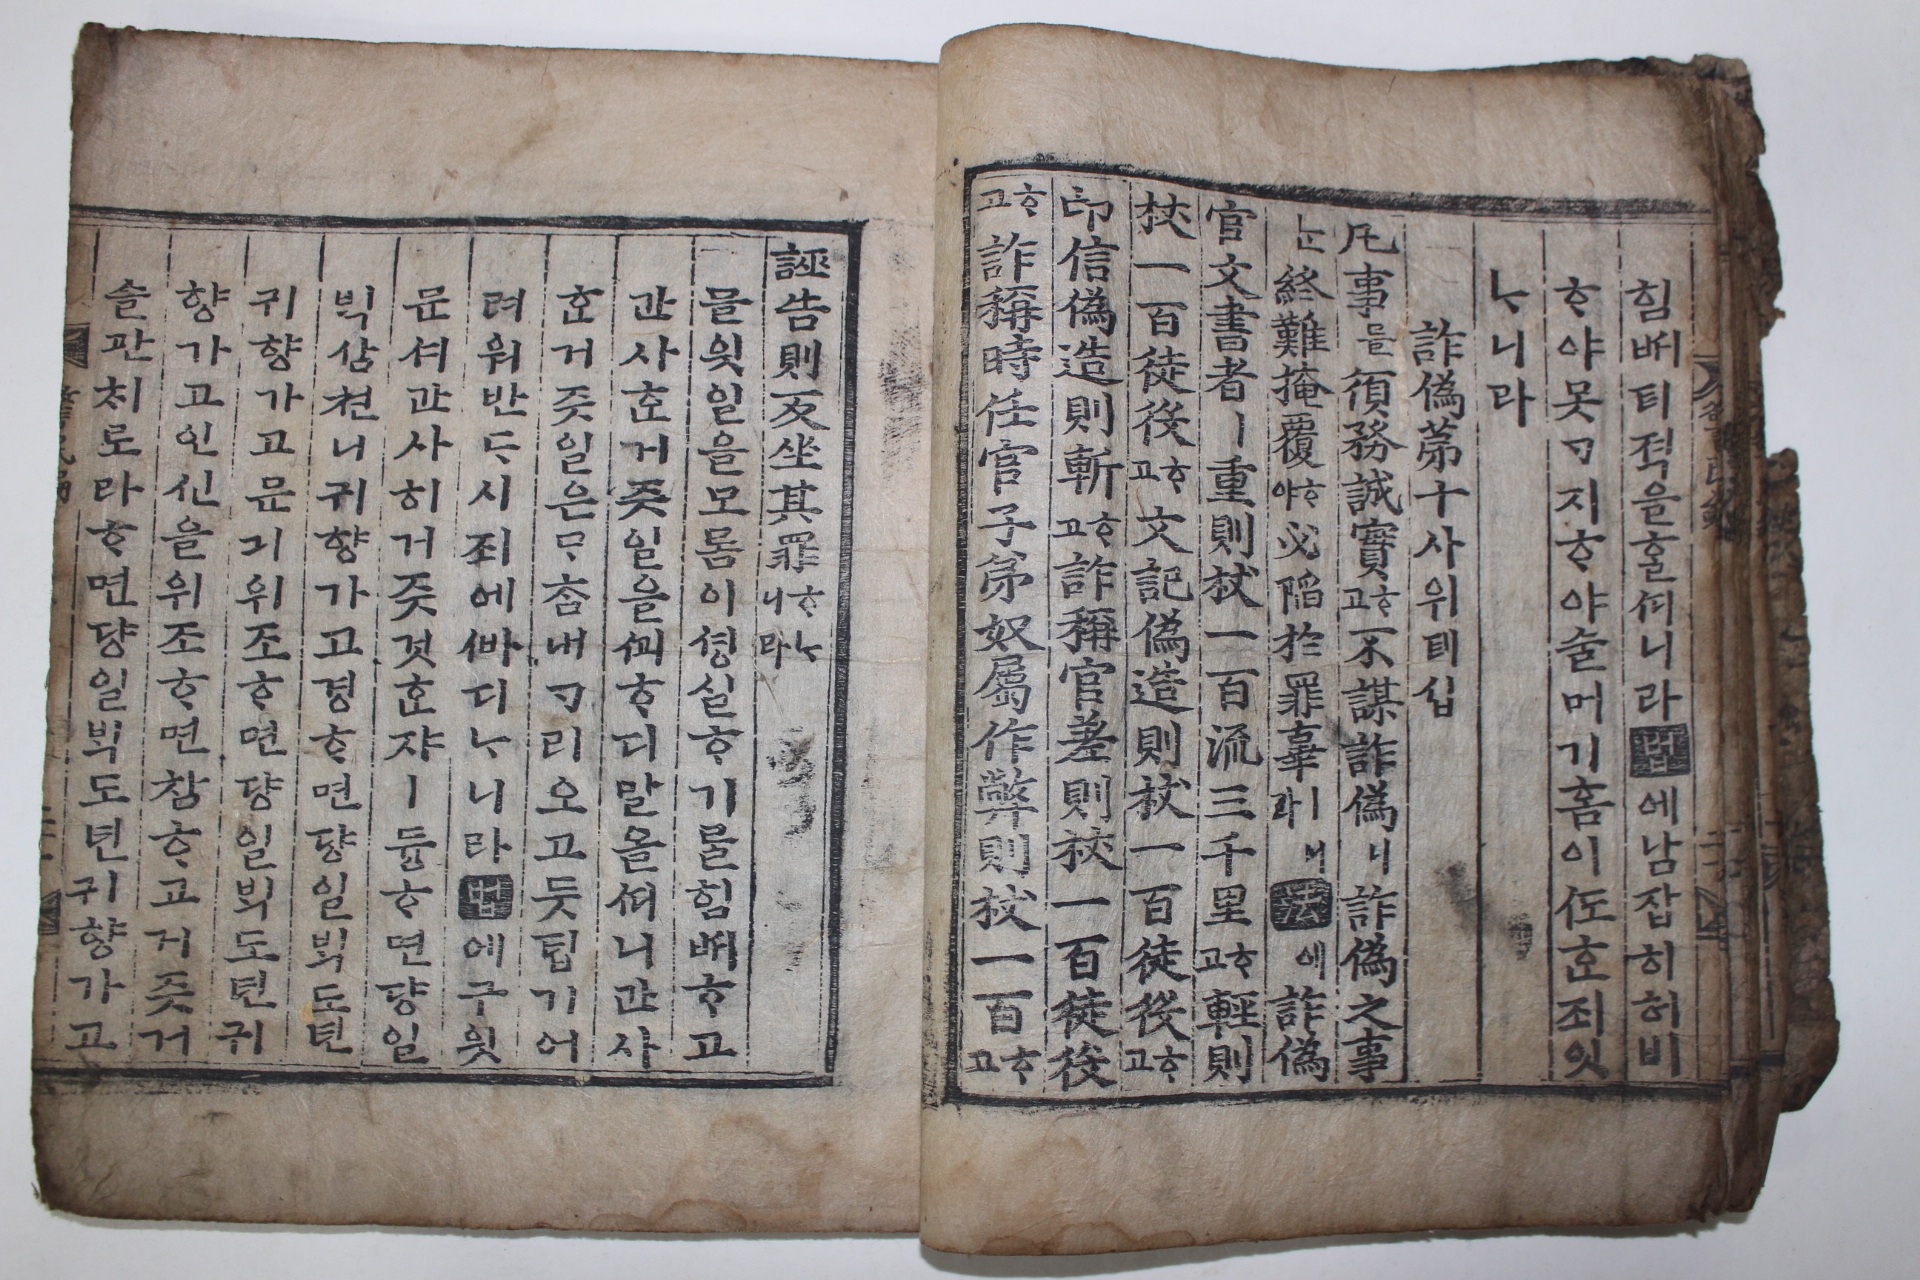 힘ᄡᅥ티젹을홀ᄯᅵ니라법에남잡히허비
ᄒᆞ야못ᄀᆞ지ᄒᆞ야술머기홈이ᄯᅩᄒᆞᆫ죄잇
ᄂᆞ니라
詐偽第十사위뎨십
凡事를須務誠實ᄒᆞ고不謀詐偽니詐偽之事
ᄂᆞᆫ終難掩覆ᄒᆞ야必陷於罪辜ㅣ라니法에詐偽
官文書者ㅣ重則杖一百流三千里ᄒᆞ고輕則
杖一百徒役ᄒᆞ고文記偽造則杖一百徒役ᄒᆞ고
印信偽造則斬ᄒᆞ고詐稱官差則杖一百徒役
ᄒᆞ고詐稱時任官子弟奴屬作弊則杖一百ᄒᆞ고
誣告則反坐其罪ᄒᆞᄂᆞ니라
믈읫일을모롬이셩실ᄒᆞ기ᄅᆞᆯ힘ᄡᅥᄒᆞ고
간사ᄒᆞᆫ거즛일을ᄭᅬᄒᆞ디말올ᄯᅵ니간사
ᄒᆞᆫ거즛일은ᄆᆞᄎᆞᆷ내ᄀᆞ리오고듯텁기어
려워반ᄃᆞ시죄에ᄲᅡ디ᄂᆞ니라법에구윗
문셔간사히거즛것ᄒᆞᆫ쟈ㅣ듕ᄒᆞ면댱일
ᄇᆡᆨ삼쳔니귀향가고경ᄒᆞ면댱일ᄇᆡᆨ도틴
귀향가고문긔위조ᄒᆞ면댱일ᄇᆡᆨ도틴귀
향가고인신을위조ᄒᆞ면참ᄒᆞ고거즛거
슬관치로라ᄒᆞ면댱일ᄇᆡᆨ도틴귀향가고